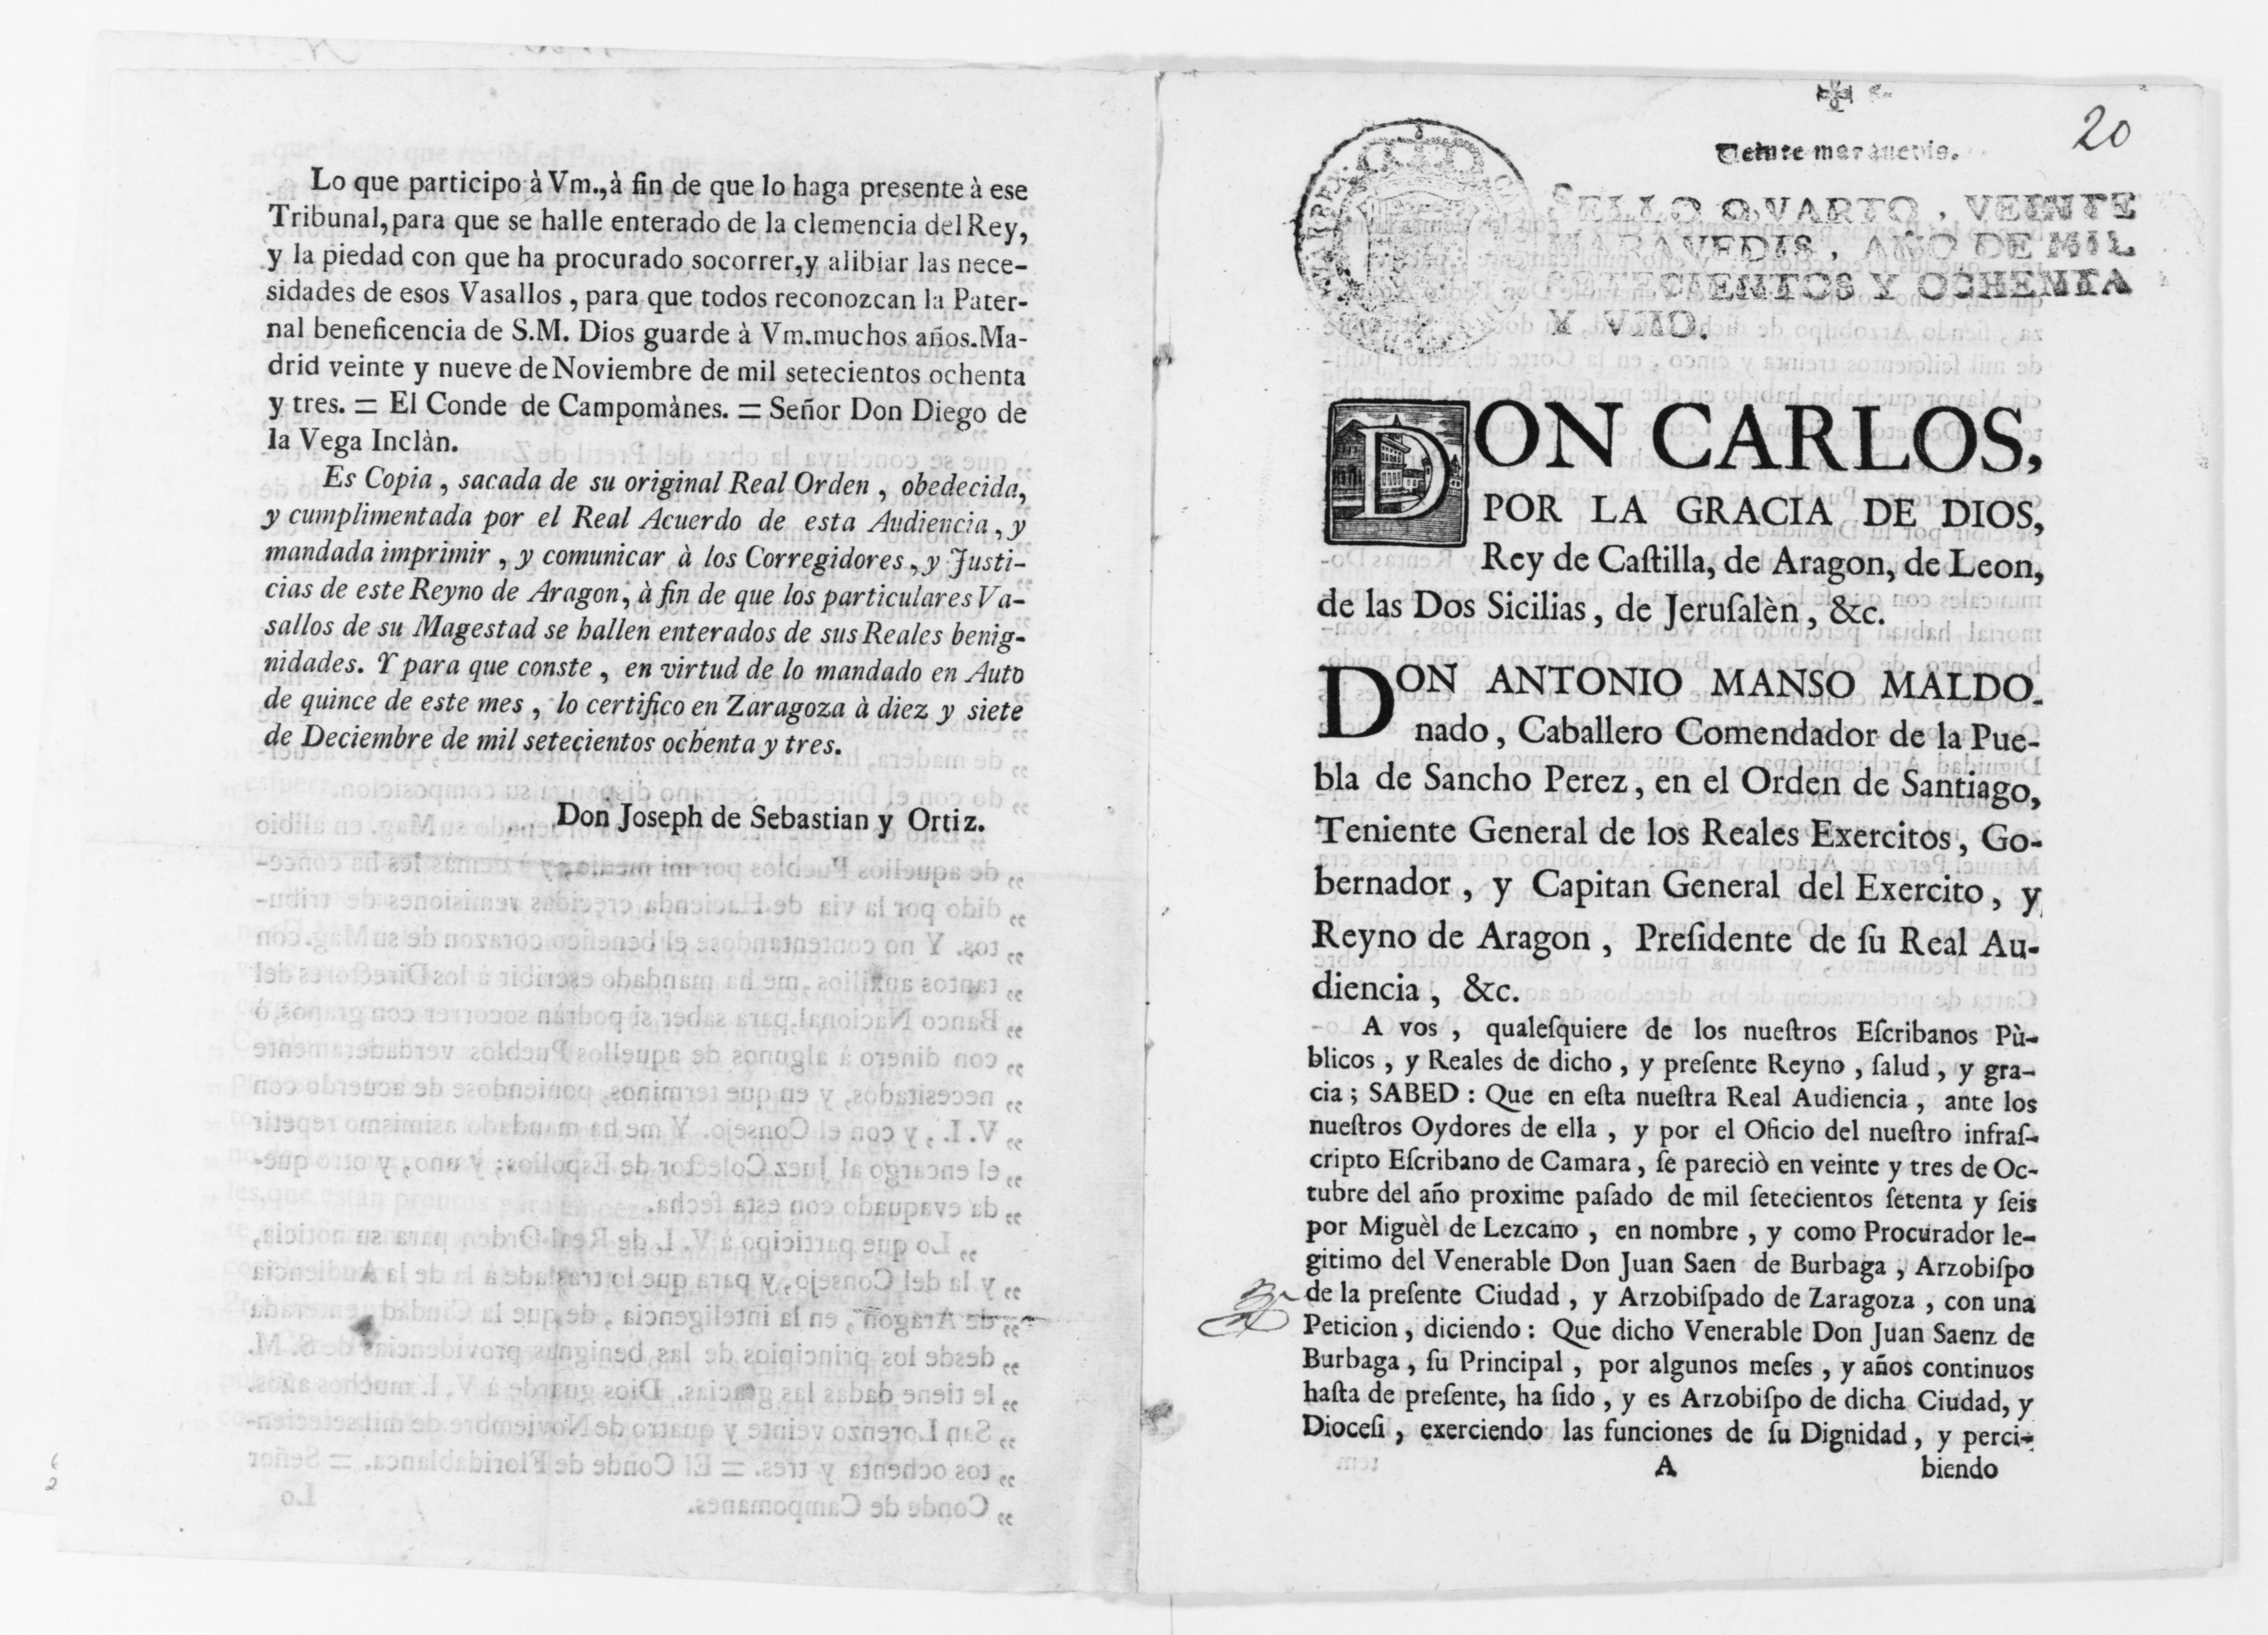 Lo que participo à Vm., à fin de que lo haga presente à ese
Tribunal, para que se halle enterado de la clemencia del Rey,
y la piedad con que ha procurado socorrer, y alibiar las nece-
sidades de esos Vasallos, para que todos reconozcan la Pater-
nal beneficencia de S.M. Dios guarde à Vm. muchos años. Ma-
drid veinte y nueve de Noviembre de mil setecientos ochenta
y tres. = El Conde de Campomànes. = Señor Don Diego de
la Vega Inclàn.
Es Copia, sacada de su original Real Orden, obedecida,
y cumplimentada por el Real Acuerdo de esta Audiencia, y
mandada imprimir, y comunicar à los Corregidores, y Justi-
cias de este Reyno de Aragon, à fin de que los particulares Va-
sallos de su Magestad se hallen enterados de sus Reales benig-
nidades. Y para que conste, en virtud de lo mandado en Auto
de quince de este mes, lo certifico en Zaragoza à diez y siete
de Deciembre de mil setecientos ochenta y tres.
Don Joseph de Sebastian y Ortiz.
20
Veinte maravedis.
SELLO QVARTO, VEINTE
MARAVEDIS, AÑO DE MIL
SETECIENTOS Y OCHENTA
Y VNO.
DON CARLOS,
POR LA GRACIA DE DIOS,
Rey de Caſtilla, de Aragon, de Leon,
de las Dos Sicilias, de Jeruſalèn, &c.
DON ANTONIO MANSO MALDO-
nado, Caballero Comendador de la Pue-
bla de Sancho Perez, en el Orden de Santiago,
Teniente General de los Reales Exercitos, Go-
bernador, y Capitan General del Exercito, y
Reyno de Aragon, Preſidente de ſu Real Au-
diencia, &c.
A vos, qualeſquiere de los nueſtros Eſcribanos Pù-
blicos, y Reales de dicho, y preſente Reyno, ſalud, y gra-
cia; SABED: Que en eſta nueſtra Real Audiencia, ante los
nueſtros Oydores de ella, y por el Oficio del nueſtro infraſ-
cripto Eſcribano de Camara, ſe pareciò en veinte y tres de Oc-
tubre del año proxime paſado de mil ſetecientos ſetenta y ſeis
por Miguèl de Lezcano, en nombre, y como Procurador le-
gitimo del Venerable Don Juan Saen de Burbaga, Arzobiſpo
de la preſente Ciudad, y Arzobiſpado de Zaragoza, con una
Peticion, diciendo: Que dicho Venerable Don Juan Saenz de
Burbaga, ſu Principal, por algunos meſes, y años continuos
haſta de preſente, ha ſido, y es Arzobiſpo de dicha Ciudad, y
Dioceſi, exerciendo las funciones de ſu Dignidad, y perci-
A biendo